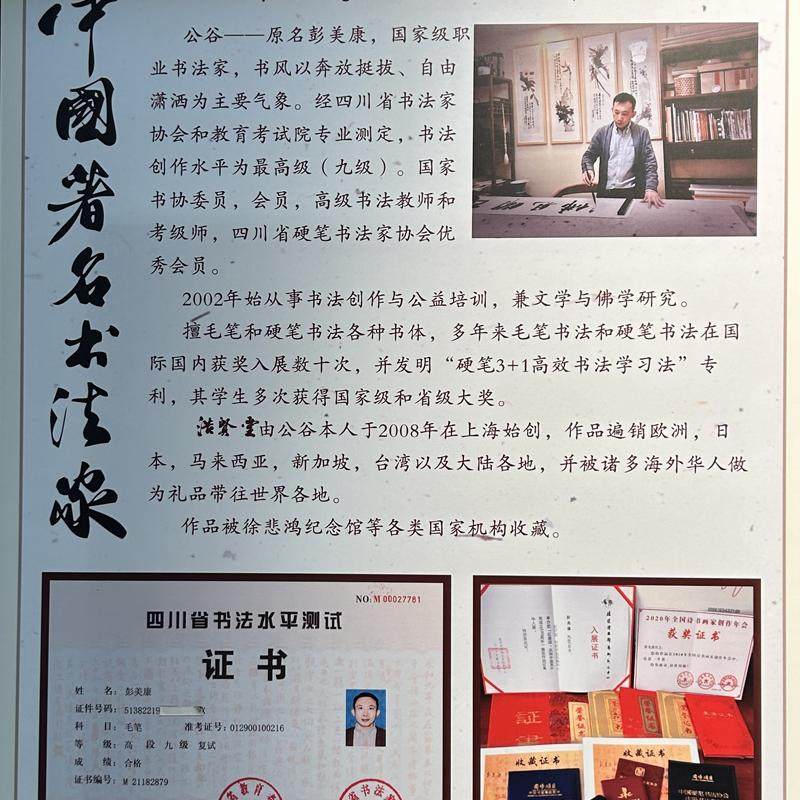 中國著名书法家
公谷——原名彭美康，国家级职
业书法家，书风以奔放挺拔、自由
潇洒为主要气象。经四川省书法家
协会和教育考试院专业测定，书法
创作水平为最高级（九级）。国家
书协委员，会员，高级书法教师和
考级师，四川省硬笔书法家协会优
秀会员。
2002年始从事书法创作与公益培训，兼文学与佛学研究。
擅毛笔和硬笔书法各种书体，多年来毛笔书法和硬笔书法在国
际国内获奖入展数十次，并发明“硬笔3+1高效书法学习法”专
利，其学生多次获得国家级和省级大奖。
浩紫堂由公谷本人于2008年在上海始创，作品遍销欧洲，日
本，马来西亚，新加坡，台湾以及大陆各地，并被诸多海外华人做
为礼品带往世界各地。
作品被徐悲鸿纪念馆等各类国家机构收藏。
NO:M 00027781
四川省书法水平测试
证书
姓 名：彭美康
证件号码：51382219 X
科 目：毛笔 准考证号：012900100216
等 级：高 段 九 级 复试
成 绩：合格
证书编号：M 21182879
入展证书
2020年全国诗书画家创作年会
获奖证书
证书
荣誉证书
收藏证书
收藏证书
中国硬笔书法协会